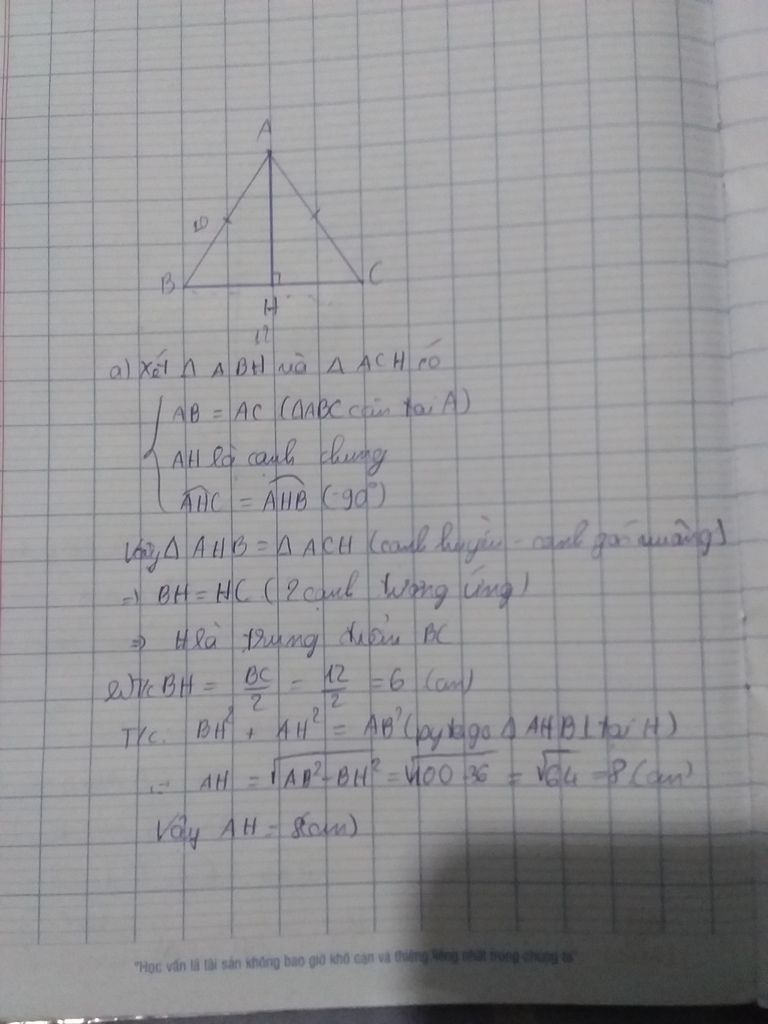 A
10
B
C
H
12
a) Xét Δ ABH và Δ ACH có
AB = AC (ΔABC cân tại A)
AH là cạnh chung
AHC = AHB (=90°)
Vậy Δ AHB = Δ ACH (cạnh huyền - cạnh góc vuông)
=> BH = HC (2 cạnh tương ứng)
=> H là trung điểm BC
b) T/c BH = BC/2 = 12/2 = 6 (cm)
T/c. BH² + AH² = AB² (pytago Δ AHB ⊥ tại H)
=> AH = √AB²-BH² = √100-36 = √64 = 8 (cm)
Vậy AH = 8(cm)
"Học vấn là tài sản không bao giờ khô cạn và thiêng liêng nhất trong chúng ta"